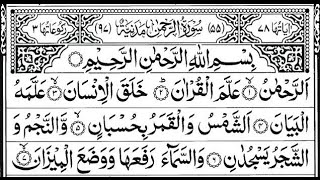 اٰيَاتُهَا ٧٨ (٥٥) سُوْرَةُ الرَّحْمٰنِ مَدَنِيَّةٌ (٩٧) رُكُوْعَاتُهَا ٣
بِسْمِ اللّٰهِ الرَّحْمٰنِ الرَّحِيْمِ
اَلرَّحْمٰنُ ۙ۱ عَلَّمَ الْقُرْاٰنَ ؕ۲ خَلَقَ الْاِنْسَانَ ۙ۳ عَلَّمَهُ
الْبَيَانَ ۴ اَلشَّمْسُ وَ الْقَمَرُ بِحُسْبَانٍ ۪۵ وَّ النَّجْمُ وَ
الشَّجَرُ يَسْجُدٰنِ ۶ وَ السَّمَآءَ رَفَعَهَا وَ وَضَعَ الْمِيْزَانَ ۙ۷